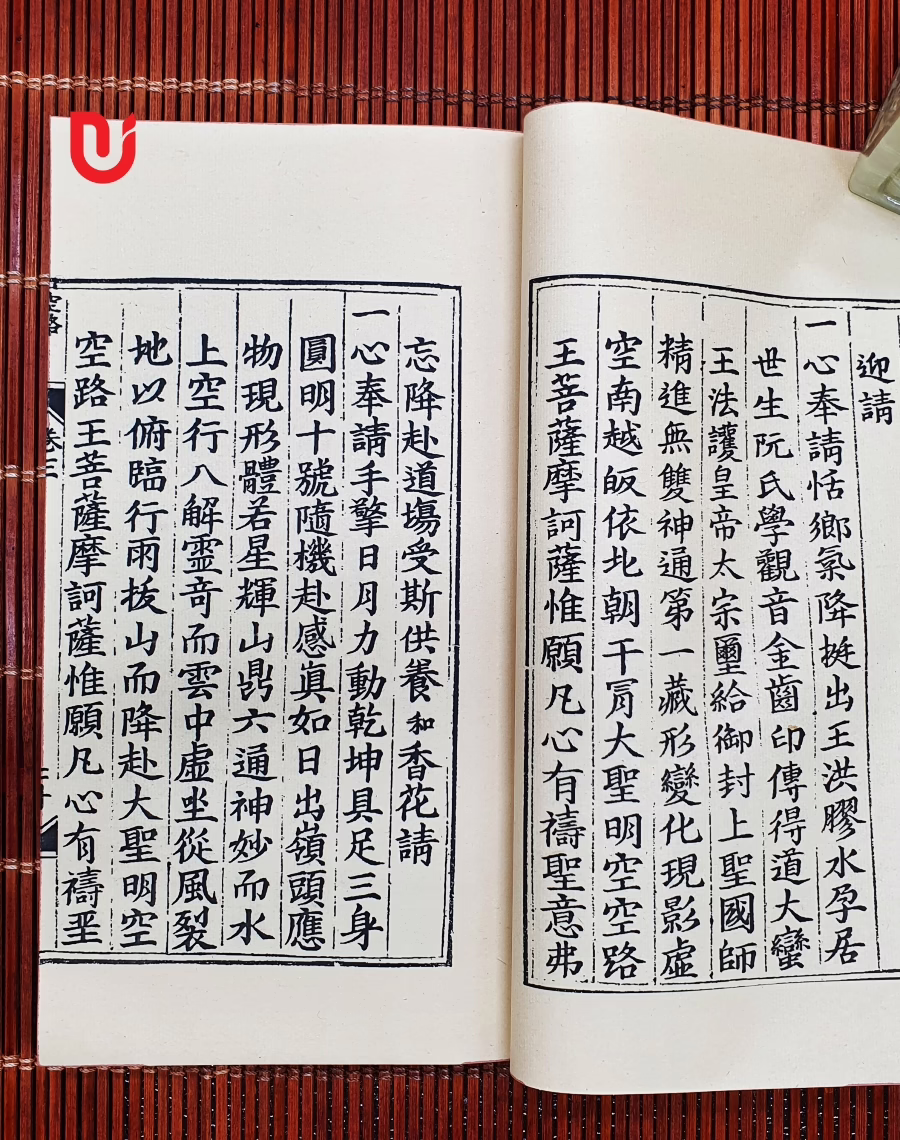 迎請
一心奉請恬鄉氣降挺出王洪膠水孕居
世生阮氏學觀音金齒印傳得道大蠻
王法護皇帝太宗璽給御封上聖國師
精進無雙神通第一藏形變化現影虛
空南越皈依北朝干冐大聖明空空路
王菩薩摩訶薩惟願凡心有禱聖意弗
忘降赴道塲受斯供養和香花請
一心奉請手擎日月力動乾坤具足三身
圓明十號隨機赴感真如日出嶺頭應
物現形體若星輝山鼎六通神妙而水
上空行八解靈奇而雲中虛坐從風裂
地以俯臨行雨拔山而降赴大聖明空
空路王菩薩摩訶薩惟願凡心有禱圣
空路
卷三